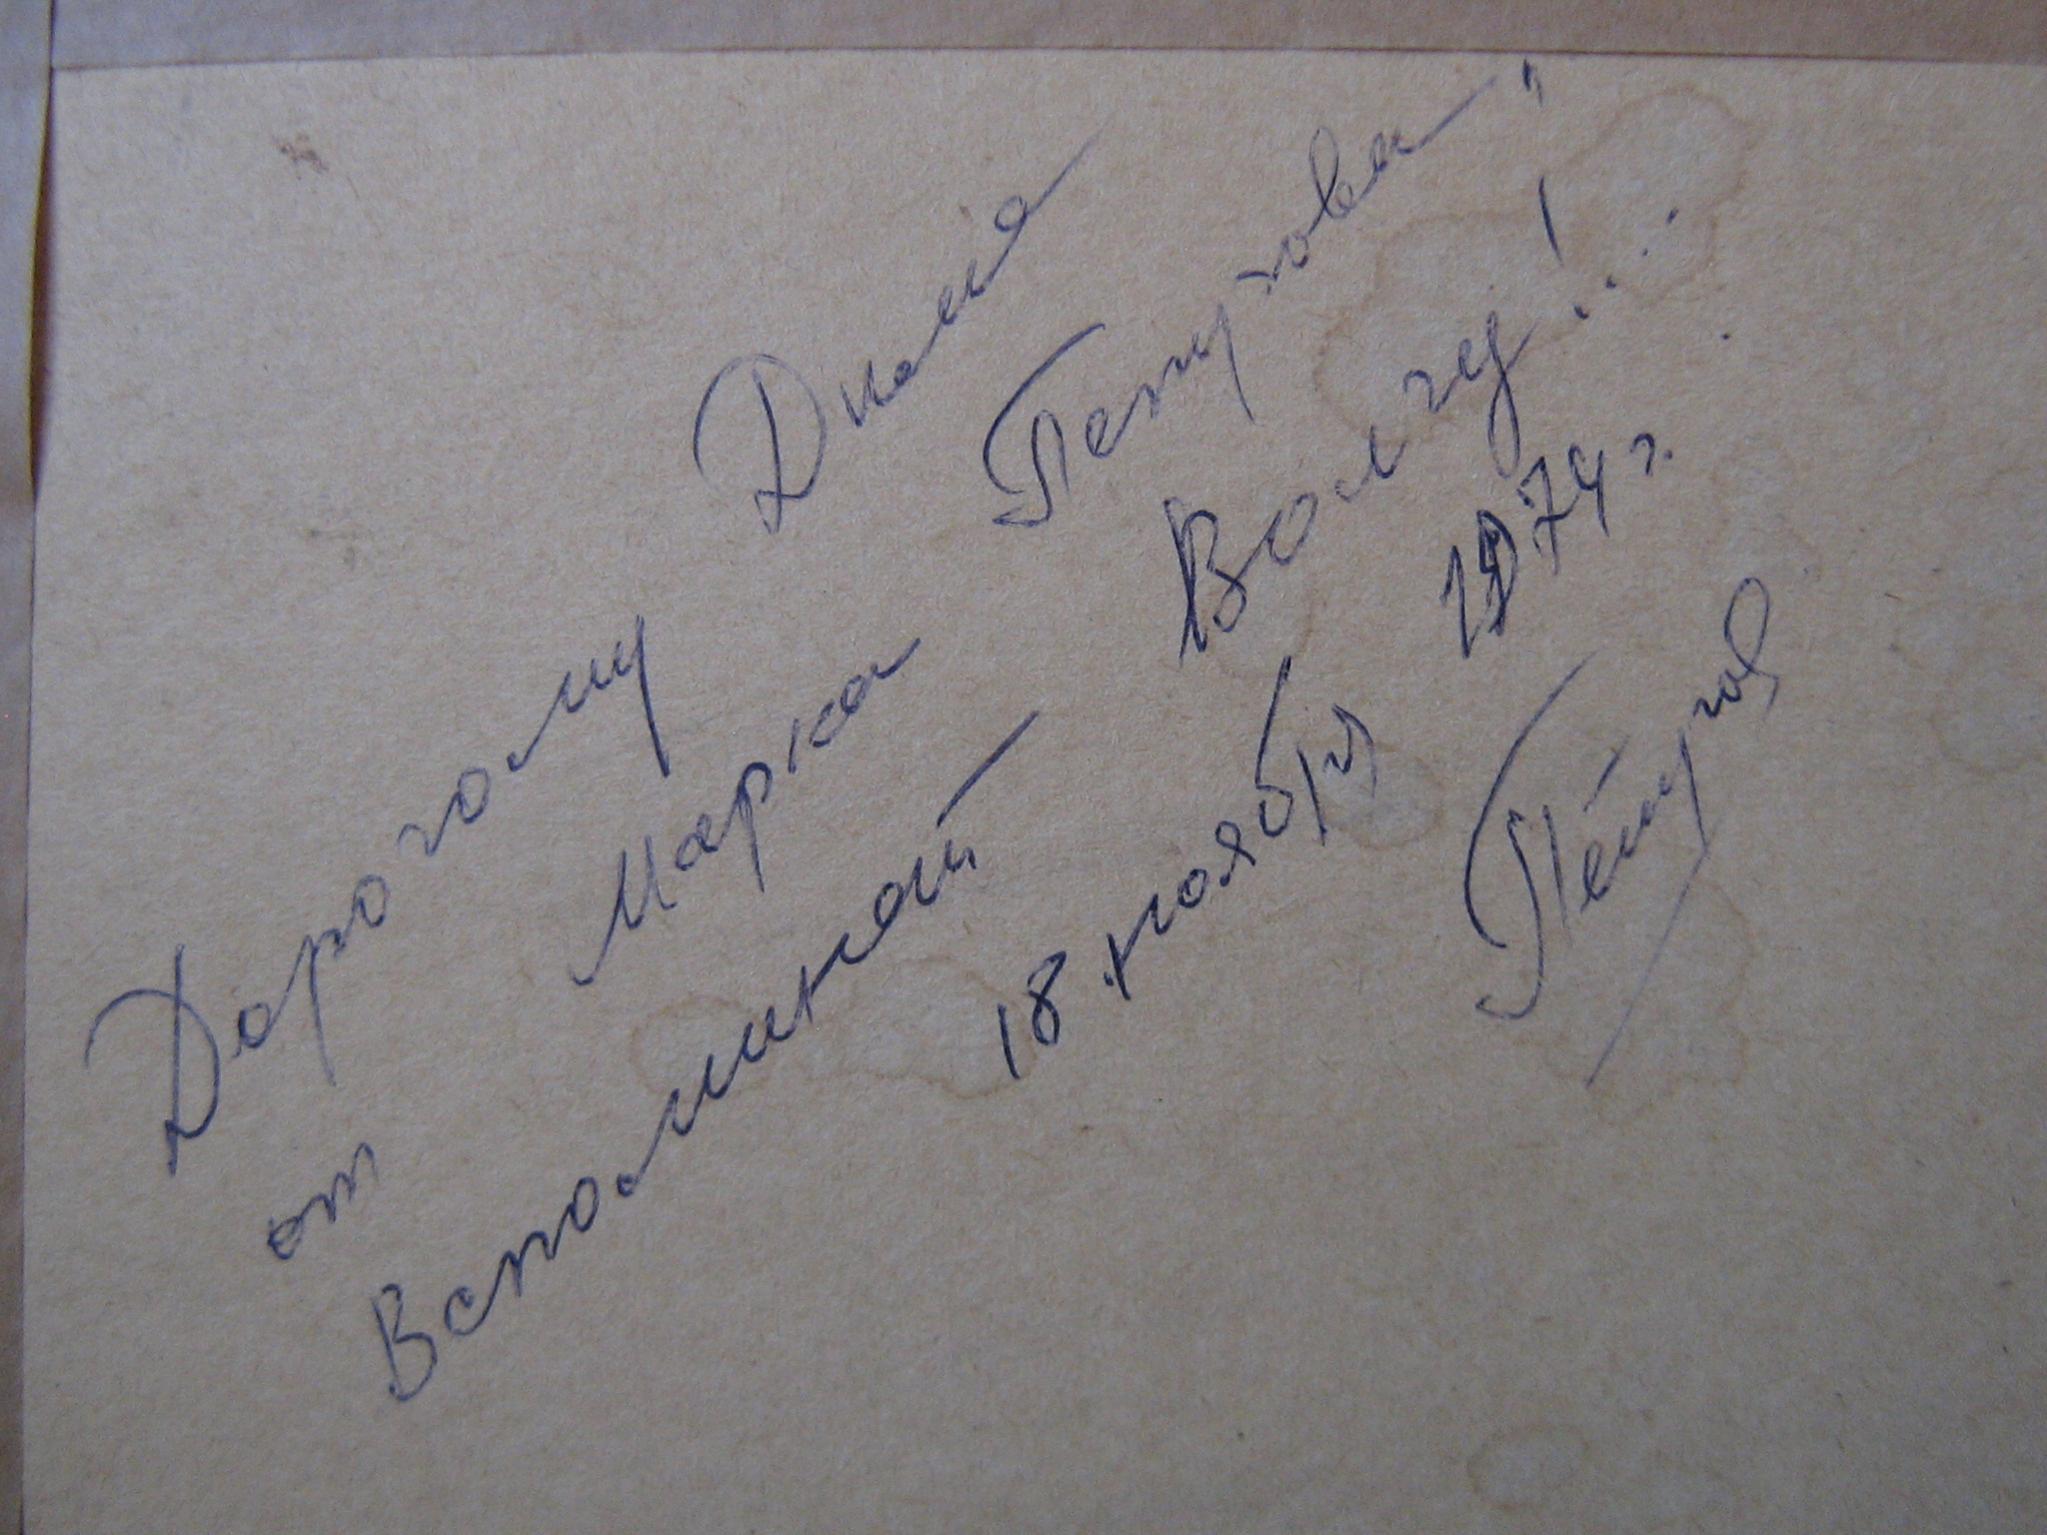 Дорогому Диме
от Марка Петухова"
Вспоминай Волгу!...
18 ноября 1974 г.
Петухов